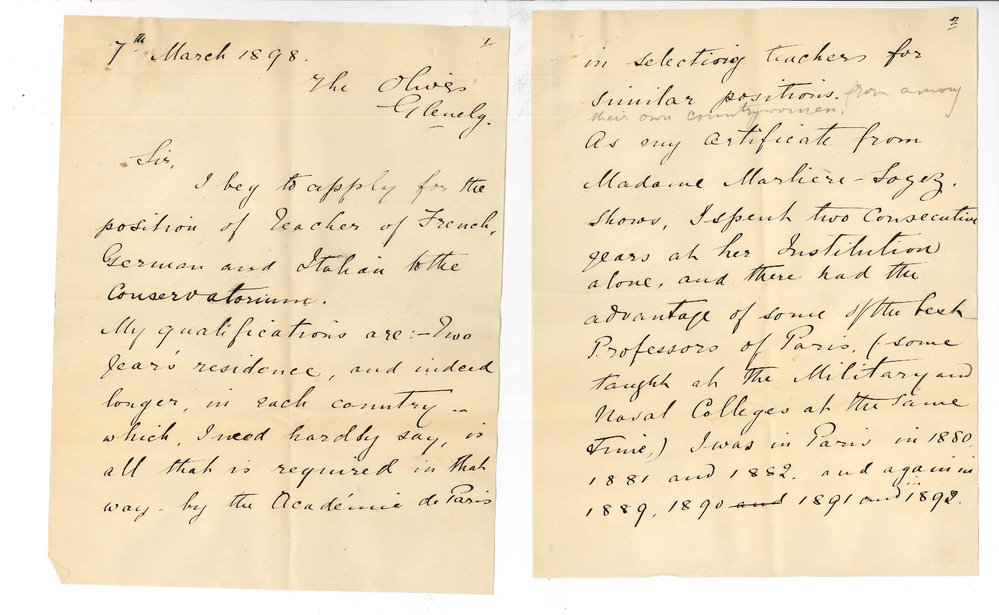 1
7th March 1898.
The Olives
Glenelg.
Sir,
I beg to apply for the
position of Teacher of French,
German and Italian to the
Conservatorium.
My qualifications are:- Two
Year's residence, and indeed
longer, in each country –
which, I need hardly say, is
all that is required in that
way. by the Académie de Paris
2
in selecting teachers for
similar positions. from among
their own countrywomen.
As my certificate from
Madame Marlière-Logez.
shows, I spent two consecutive
years at her Institution
alone, and there had the
advantage of some of the best
Professors of Paris, (some
taught at the Military and
Naval Colleges at the same
time.) I was in Paris in 1880,
1881 and 1882. and again in
1889, 1890 and 1891 and 1892.